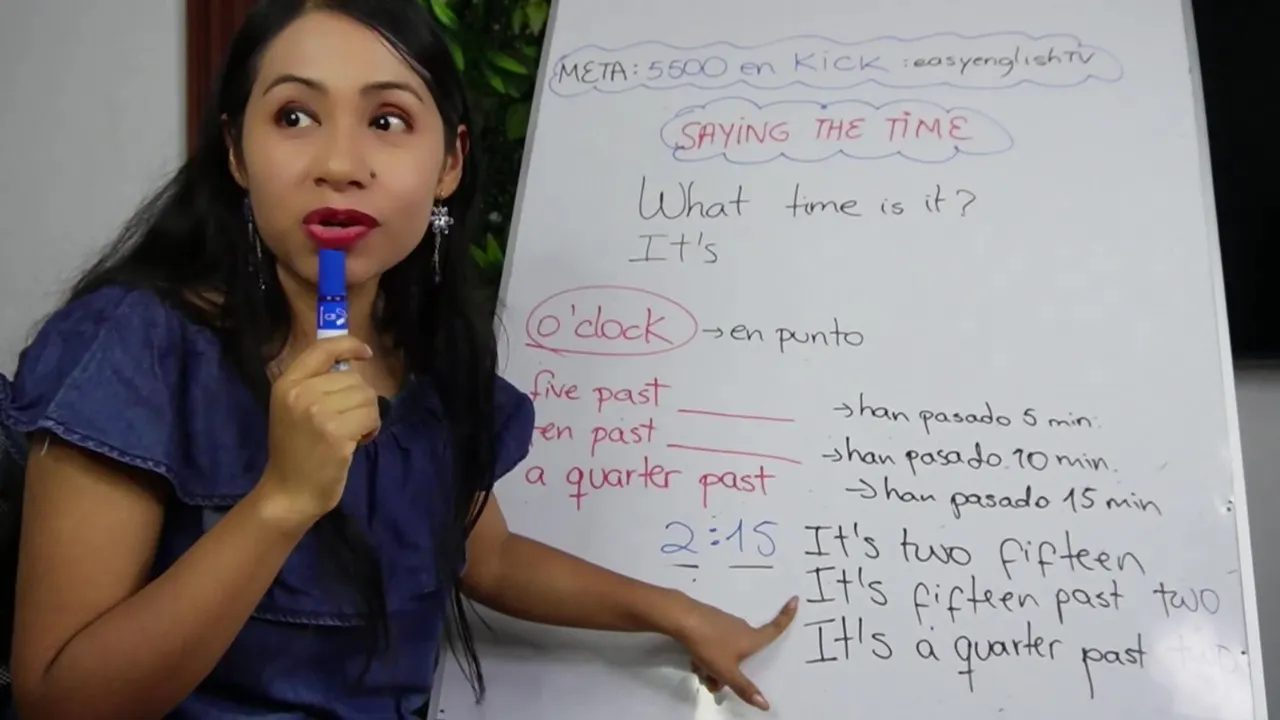 META: 5500 en Kick :easyenglishTV
SAYING THE TIME
What time is it?
It's
o'clock → en punto
five past ______ → han pasado 5 min.
ten past ______ → han pasado 10 min.
a quarter past → han pasado 15 min
2:15 It's two fifteen
It's fifteen past two
It's a quarter past two